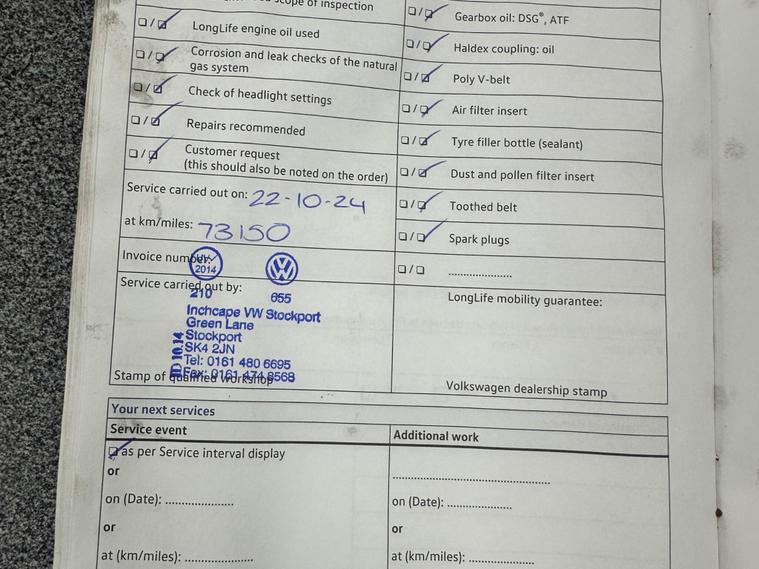 scope of inspection
LongLife engine oil used
Corrosion and leak checks of the natural
gas system
Check of headlight settings
Repairs recommended
Customer request
(this should also be noted on the order)
Service carried out on: 22-10-24
at km/miles: 73150
Invoice number:
2014
Service carried out by:
210 655
Inchcape VW Stockport
Green Lane
Stockport
SK4 2JN
Tel: 0161 480 6695
Fax: 0161 474 8568
10.14
Stamp of qualified workshop
Gearbox oil: DSG®, ATF
Haldex coupling: oil
Poly V-belt
Air filter insert
Tyre filler bottle (sealant)
Dust and pollen filter insert
Toothed belt
Spark plugs
......................
LongLife mobility guarantee:
Volkswagen dealership stamp
Your next services
Service event
as per Service interval display
or
on (Date): .......................
or
at (km/miles): .......................
Additional work
......................................................
on (Date): .......................
or
at (km/miles): .......................